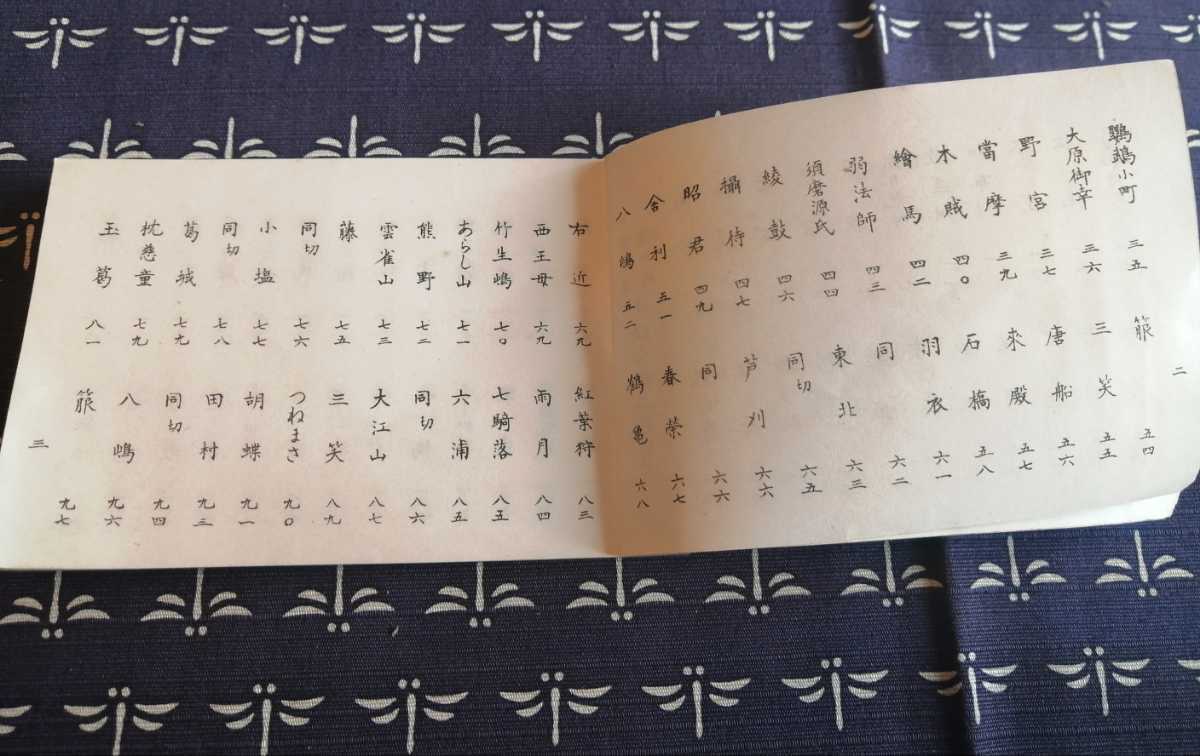 二
鸚鵡小町 三五
大原御幸 三六
野宮 三七
當摩 三九
木賊 四〇
繪馬 四二
弱法師 四三
須磨源氏 四四
綾鼓 四六
攝待 四七
昭君 四九
舎利 五一
八嶋 五二
箙 五四
三笑 五五
唐船 五六
來殿 五七
石橋 五八
羽衣 六一
同 六二
東北 六三
同切 六五
芦刈 六六
同 六六
春榮 六七
鶴亀 六八
右近 六九
西王母 六九
竹生嶋 七〇
あらし山 七一
熊野 七二
雲雀山 七三
藤 七五
同切 七六
小塩 七七
同切 七八
葛城 七九
枕慈童 七九
玉葛 八一
紅葉狩 八三
雨月 八四
七騎落 八五
六浦 八五
同切 八六
大江山 八七
三笑 八九
つねまさ 九〇
胡蝶 九一
田村 九三
同切 九四
八嶋 九六
箙 九七
三